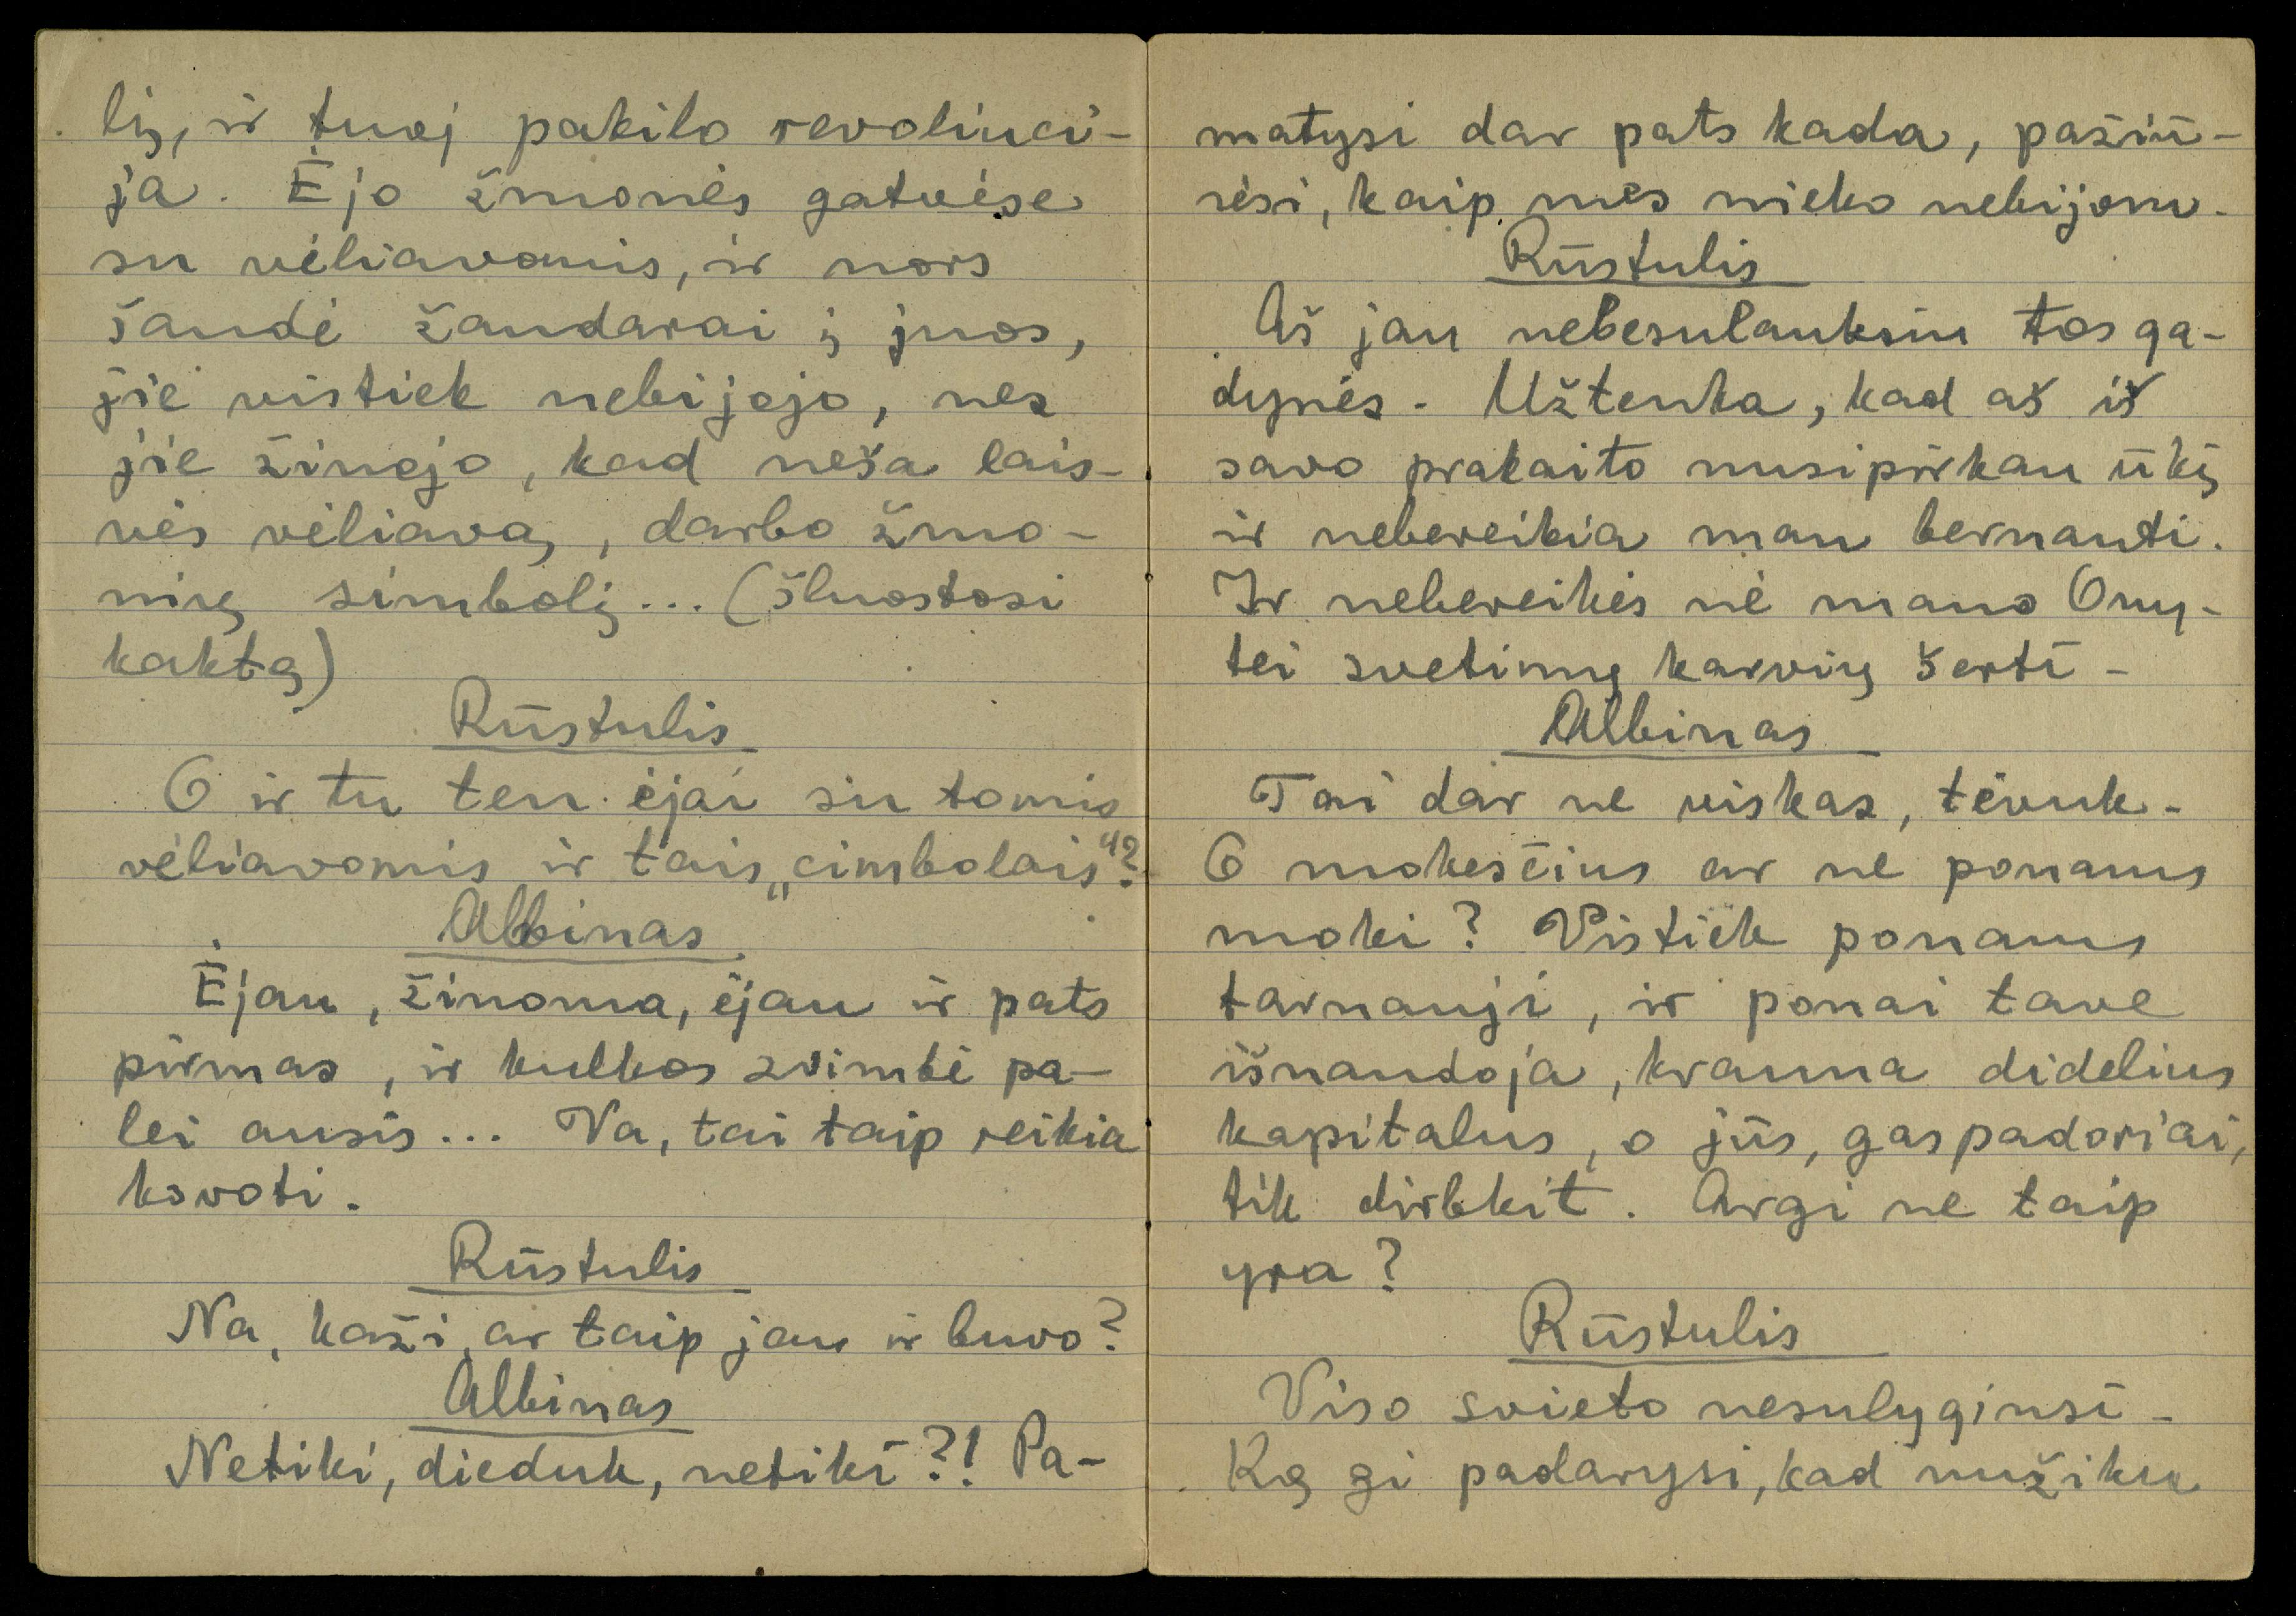 lį, ir tuoj pakilo revoliuci-
ja. Ėjo žmonės gatvėse
su vėliavomis, ir nors
šaudė žandarai į juos,
jie vistiek nebijojo, nes
jie žinojo, kad neša lais-
vės vėliavą, darbo žmo-
nių simbolį... (šluostosi
kaktą)
Rūstulis
O ir tu ten ėjai su tomis
vėliavomis ir tais „cimbolais“?
Albinas
Ėjau, žinoma, ėjau ir pats
pirmas, ir kulkos zvimbė pa-
lei ausis... Va, tai taip reikia
kovoti.
Rūstulis
Na, kaži, ar taip jau ir buvo?
Albinas
Netiki, dieduk, netiki?! Pa-
matysi dar pats kada, pažiū-
rėsi, kaip mes nieko nebijom.
Rūstulis
Aš jau nebesulauksiu tos ga-
dynės. Užtenka, kad aš iš
savo prakaito nusipirkau ūkį
ir nebereikia man bernauti.
Ir nebereikės nė mano Ony-
tei svetimų karvių šerti.
Albinas
Tai dar ne viskas, tėvuk.
O mokesčius ar ne ponams
moki? Vistiek ponams
tarnauji, ir ponai tave
išnaudoja, krauna didelius
kapitalus, o jūs, gaspadoriai,
tik dirbkit. Argi ne taip
yra?
Rūstulis
Viso svieto nesulyginsi.
Ką gi padarysi, kad mužiku